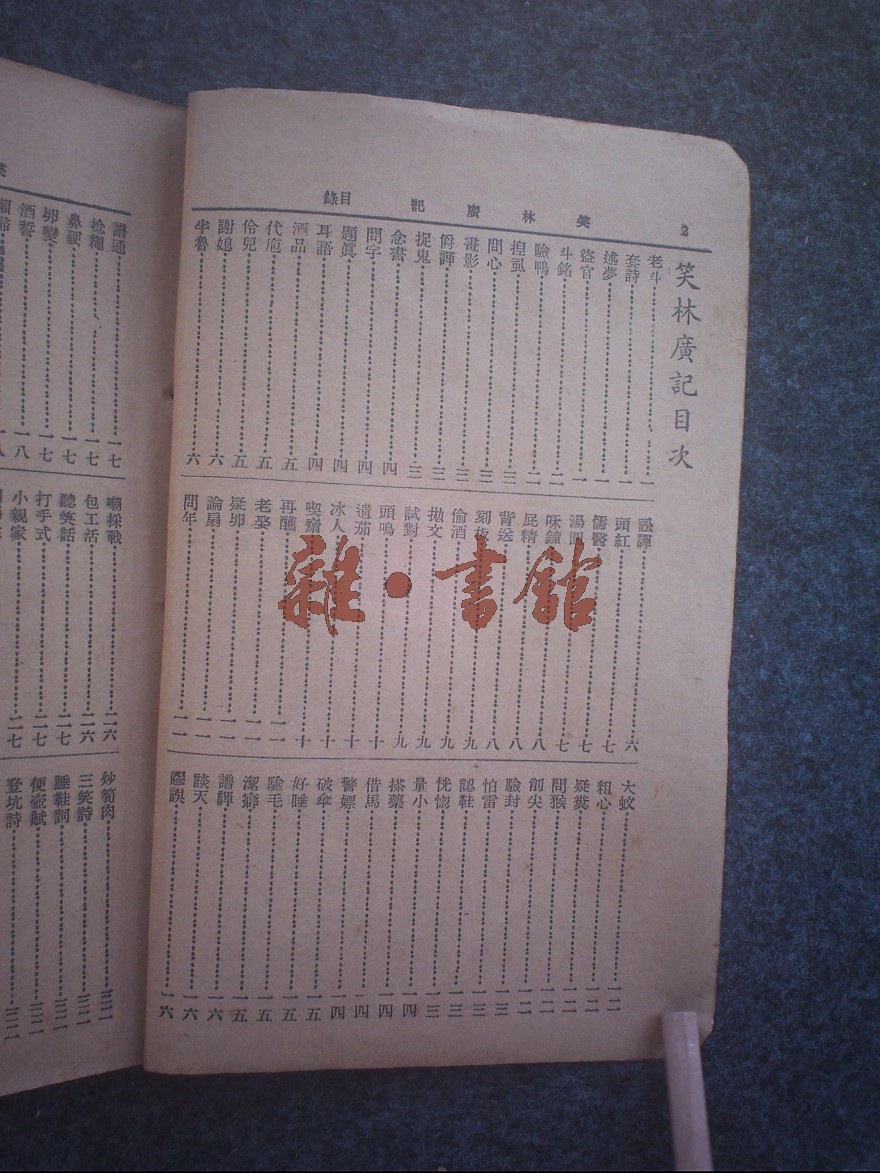 2 笑林廣記 目錄
笑林廣記目次
老斗 一
套詩 一
述夢 一
盜官 一
斗銘 二
驗鴨 二
捏虱 三
問心 三
畫影 三
爵諢 三
捉鬼 三
念書 四
問字 四
題眞 四
耳語 四
酒品 五
代庖 五
伶兒 五
謝媳 六
半魯 六
訟諢 六
頭紅 七
儒醫 七
湯圓 七
鐘 八
屁精 八
背送 八
刻板 九
偷酒 九
拋文 九
試對 九
頭鳴 十
遺茄 十
冰人 十
喫齋 十
再醮 一一
老娶 一一
疑卵 一一
論扇 一一
問年 一一
大蚊 一二
粗心 一二
疑 一二
問猴 一二
削尖 一二
驗封 一三
怕雷 一三
認鞋 一三
恍惚 一三
量小 一四
搽藥 一四
借馬 一四
警嫖 一四
破傘 一五
好睡 一五
驗毛 一五
潔癖 一五
譜諢 一六
談天 一六
謬誤 一六
譜通 一七
捻總 一七
鼻硬 一七
卵變 一七
酒誓 一八
嘲採戰 二六
包工活 二六
聽笑話 二七
打手式 二七
小親家 二七
炒筍肉 三二
三笑詩 三二
睡鞋詞 三二
便壺賦 三二
登坑詩 三二
雜·書館